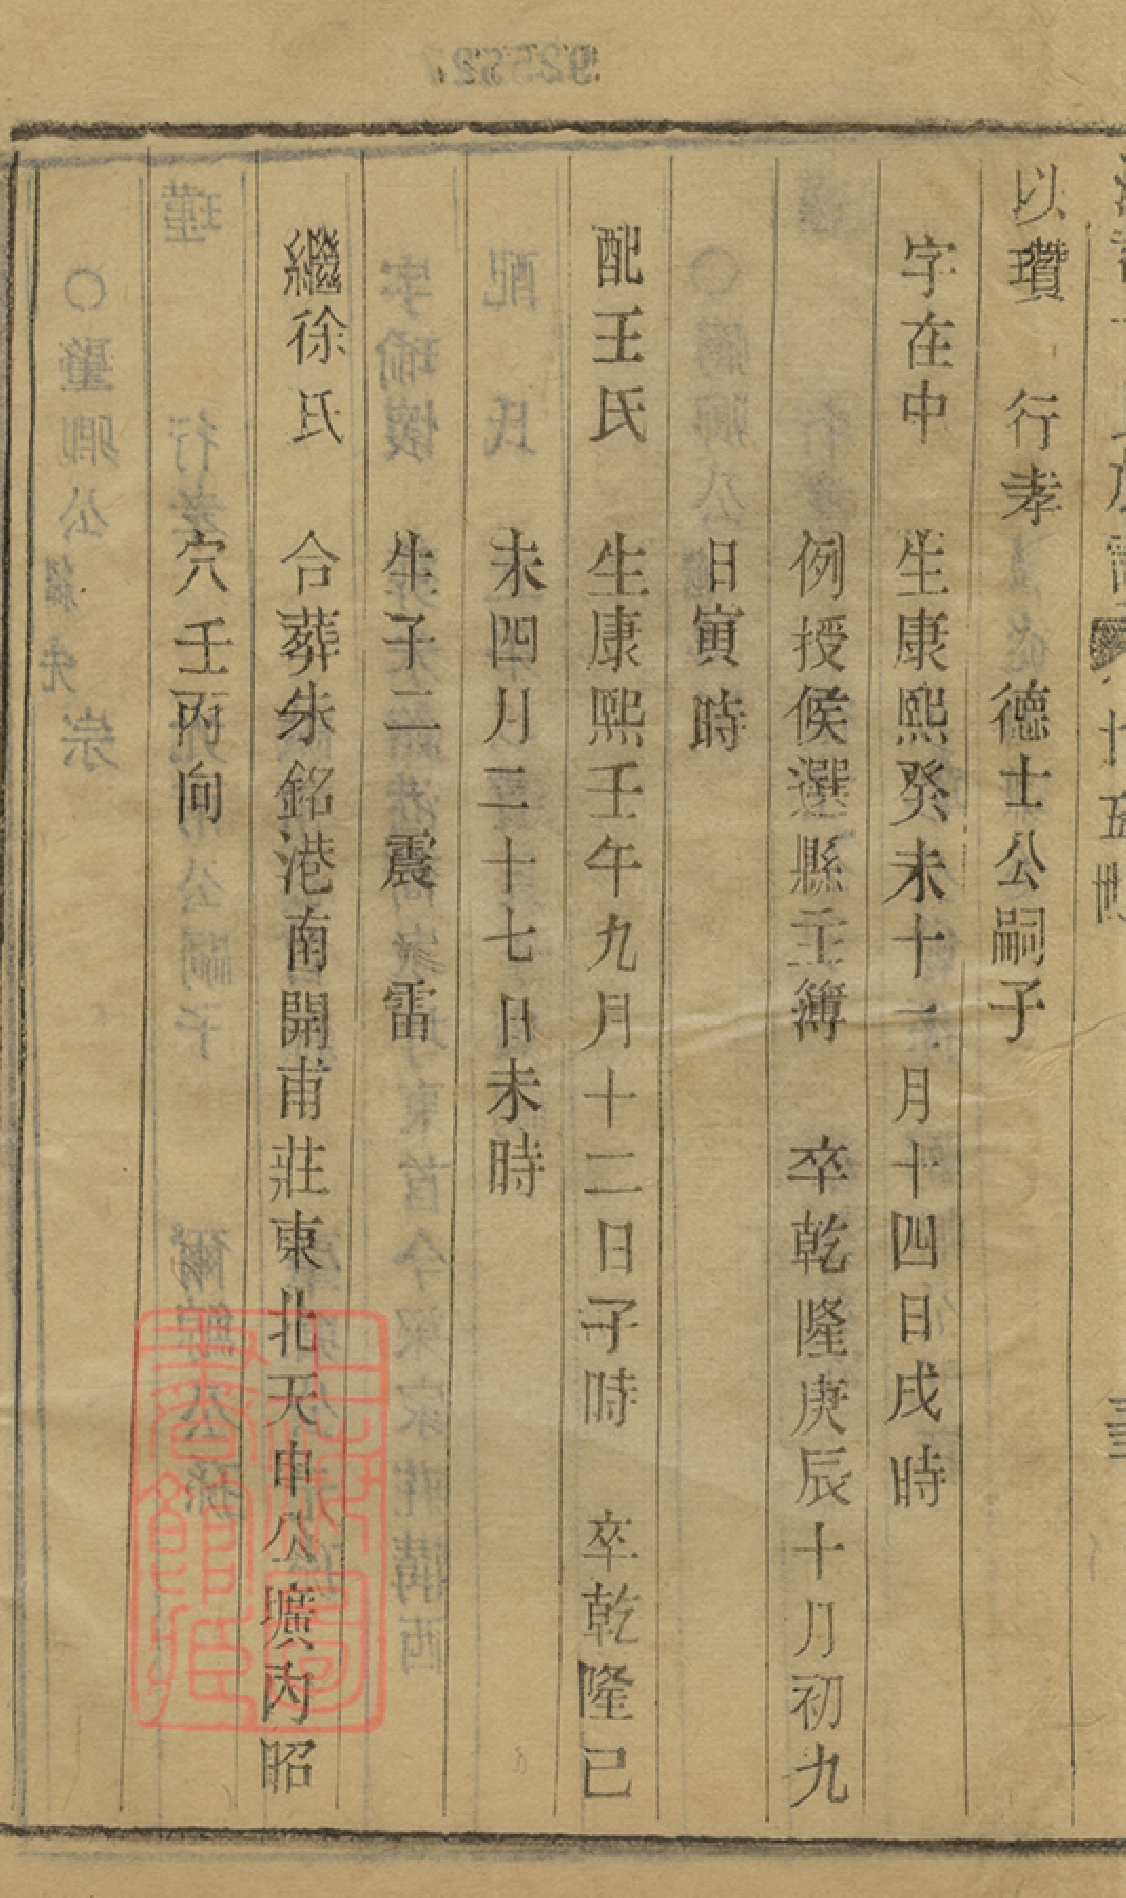 十五世
以瓚 行孝 德士公嗣子
字在中 生康熙癸未十一月十四日戌時
例授候選縣主簿 卒乾隆庚辰十月初九
日寅時
配王氏 生康熙壬午九月十二日子時 卒乾隆己
未四月二十七日未時
生子二 震 雷
繼徐氏 合葬朱銘港南開甫莊東北天申公壙內昭
穴壬丙向